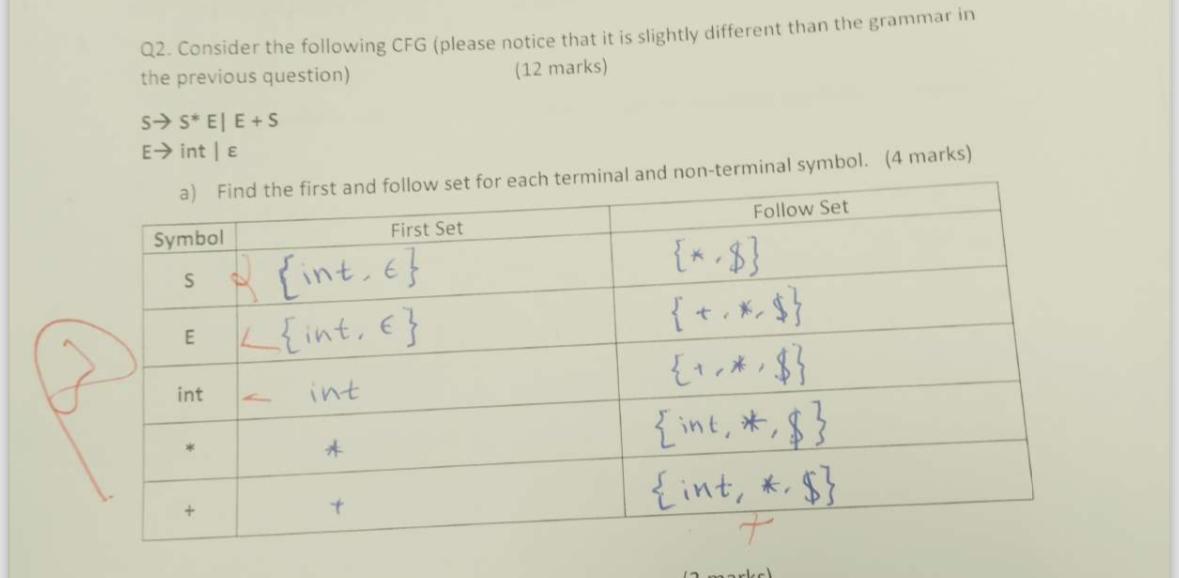 Q2. Consider the following CFG (please notice that it is slightly different than the grammar in
the previous question) (12 marks)
S→ S* E| E + S
E→ int | ε
a) Find the first and follow set for each terminal and non-terminal symbol. (4 marks)
Symbol First Set Follow Set
S {int, ϵ} {*, $}
E {int, ϵ} {+, *, $}
int int {+, *, $}
* * {int, *, $}
+ + {int, *, $}
+
marks)